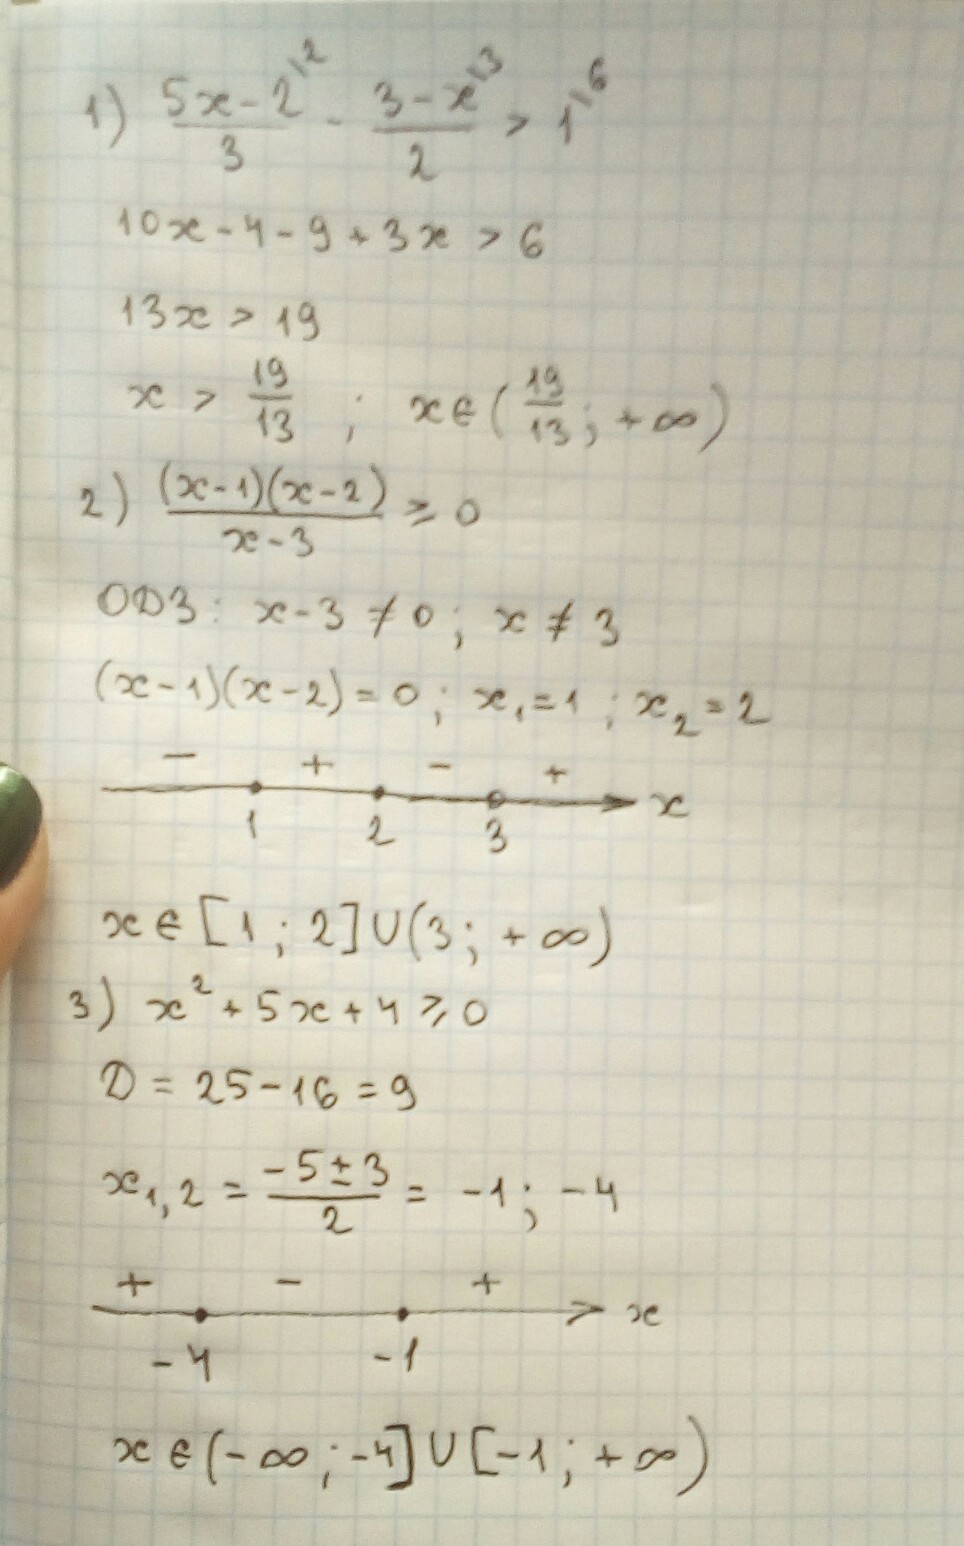 1) (5x-2)/3 ^\2 - (3-x)/2 ^\3 > 1 ^\6
10x - 4 - 9 + 3x > 6
13x > 19
x > 19/13 ; x ∈ (19/13; +∞)
2) (x-1)(x-2)/(x-3) ≥ 0
ОДЗ: x-3 ≠ 0; x ≠ 3
(x-1)(x-2) = 0; x₁ = 1; x₂ = 2
- + - +
1 2 3 x
x ∈ [1; 2] ∪ (3; +∞)
3) x² + 5x + 4 ≥ 0
D = 25 - 16 = 9
x₁,₂ = (-5 ± 3)/2 = -1; -4
+ - +
-4 -1 x
x ∈ (-∞; -4] ∪ [-1; +∞)